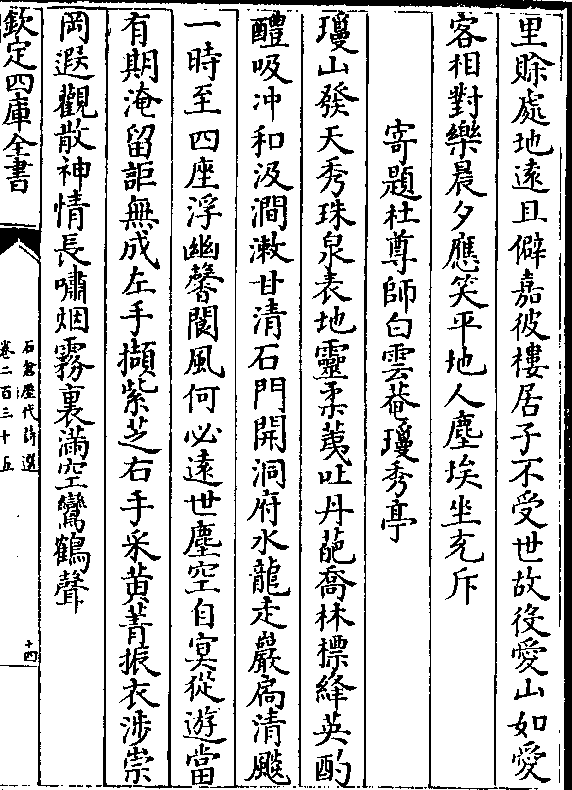 里賒處地遠且僻嘉彼樓居子不受世故役愛山如愛
客相對樂晨夕應笑平地人塵埃坐充斥
寄題杜尊師白雲菴瓊秀亭
瓊山發天秀珠泉表地靈柔荑吐丹葩喬林標絳英酌
醴吸冲和汲澗漱甘清石門開洞府水龍走巖扃清飈
一時至四座浮幽馨閬風何必遠世塵空自冥從遊當
有期淹留詎無成左手擷紫芝右手采黄菁振衣涉崇
岡遐觀散神情長嘯烟霧裏滿空鸞鶴聲
欽定四庫全書
石倉歷代詩選
卷二百三十五
十四